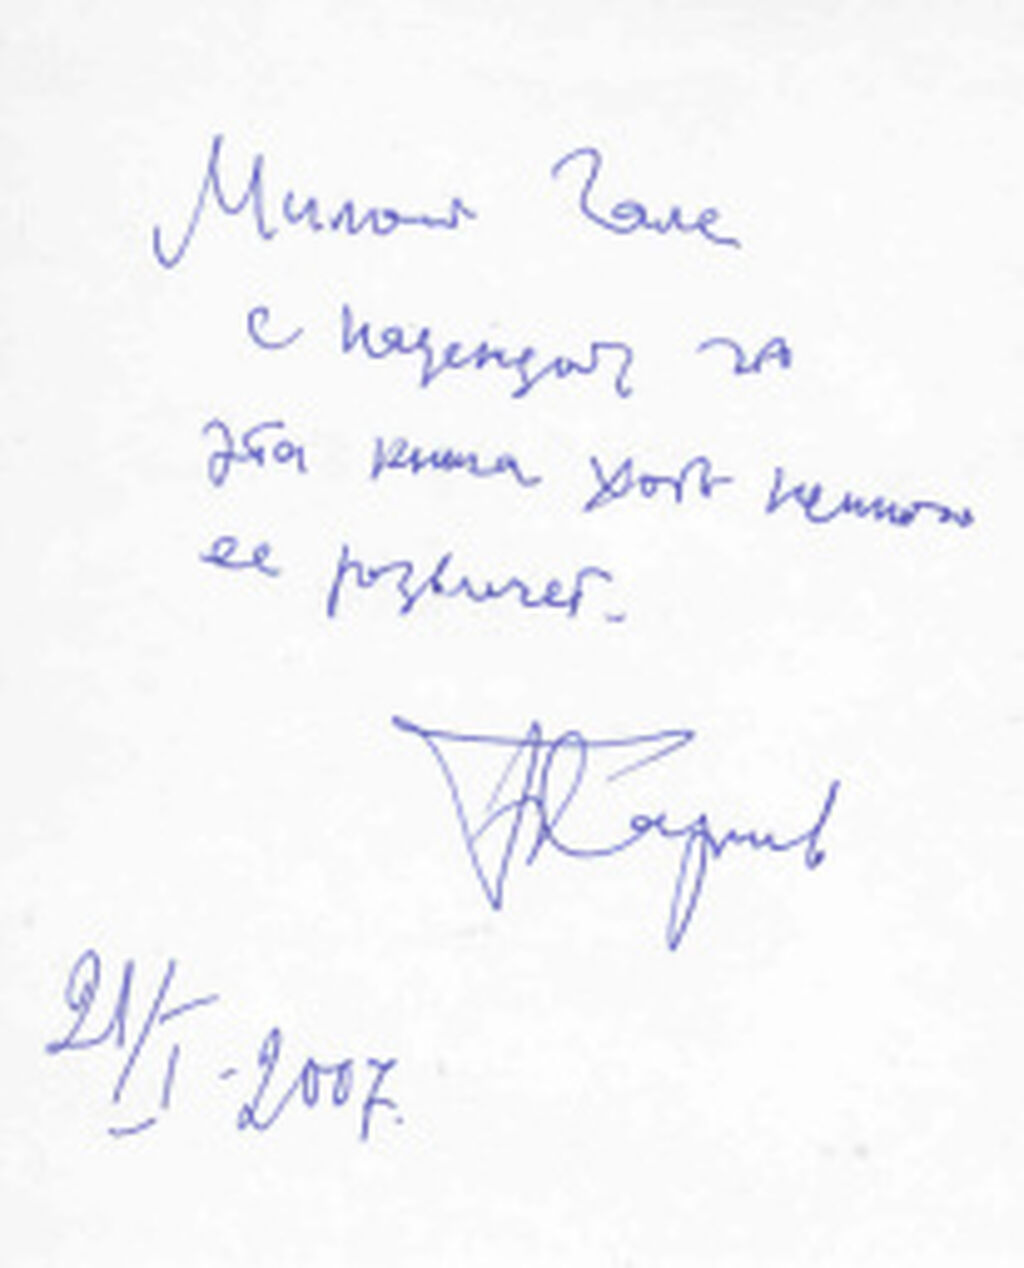 Милой Гале
с надеждой за
эта книга хоть немного
ее развлечет.
21/I-2007.